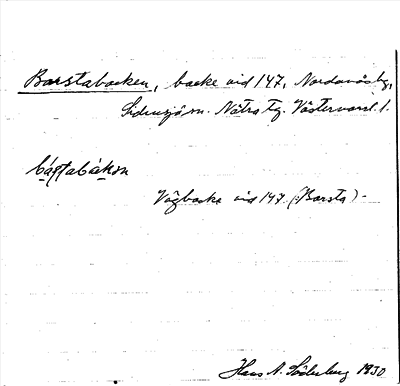 Barstabacken, backe vid 147, Nordanåsby,
Sidensjö sn. Nätra tg. Västernorrl. l.
báṣtabákɷn
Vägbacke vid 147. (Barsta).
Hans A. Söderberg 1930